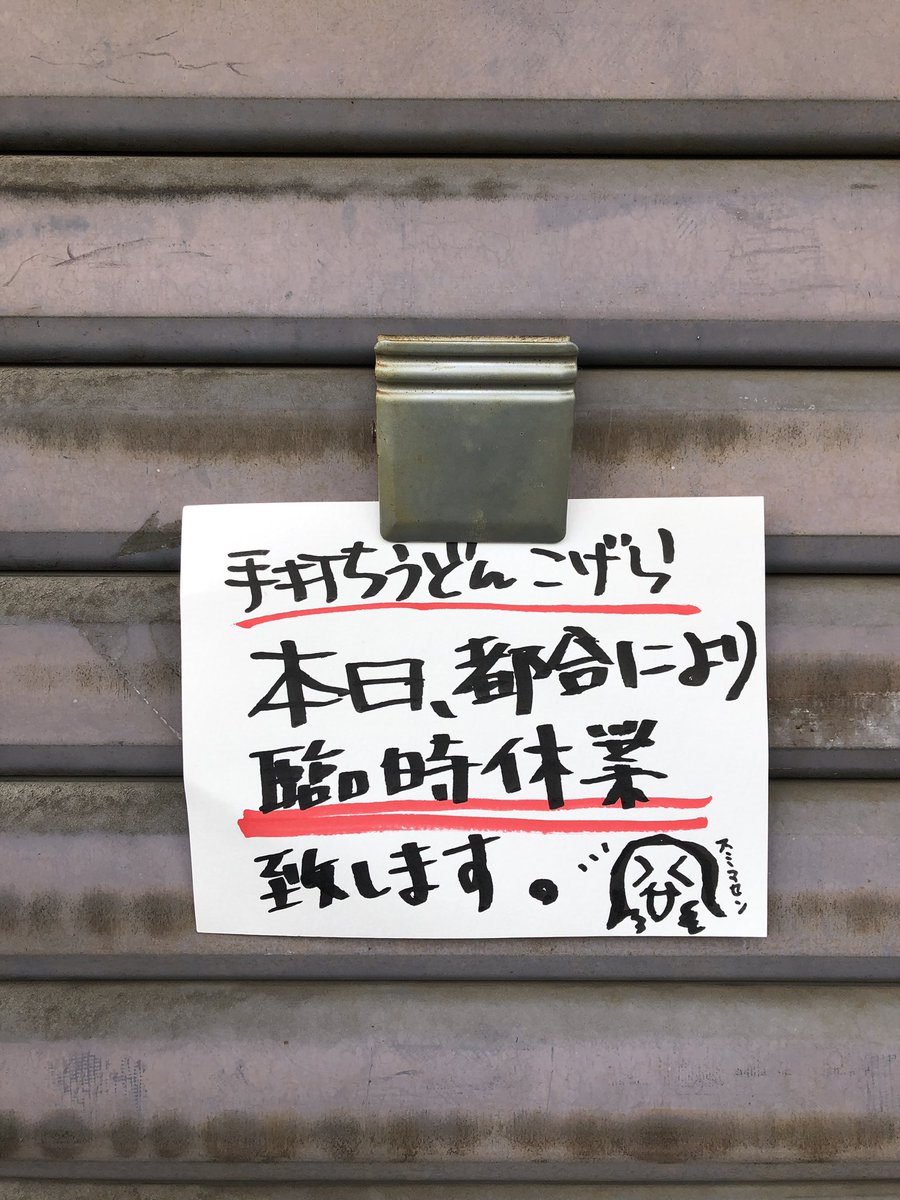 手打ちうどん こげら
本日、都合により
臨時休業
致します。
スミマセン